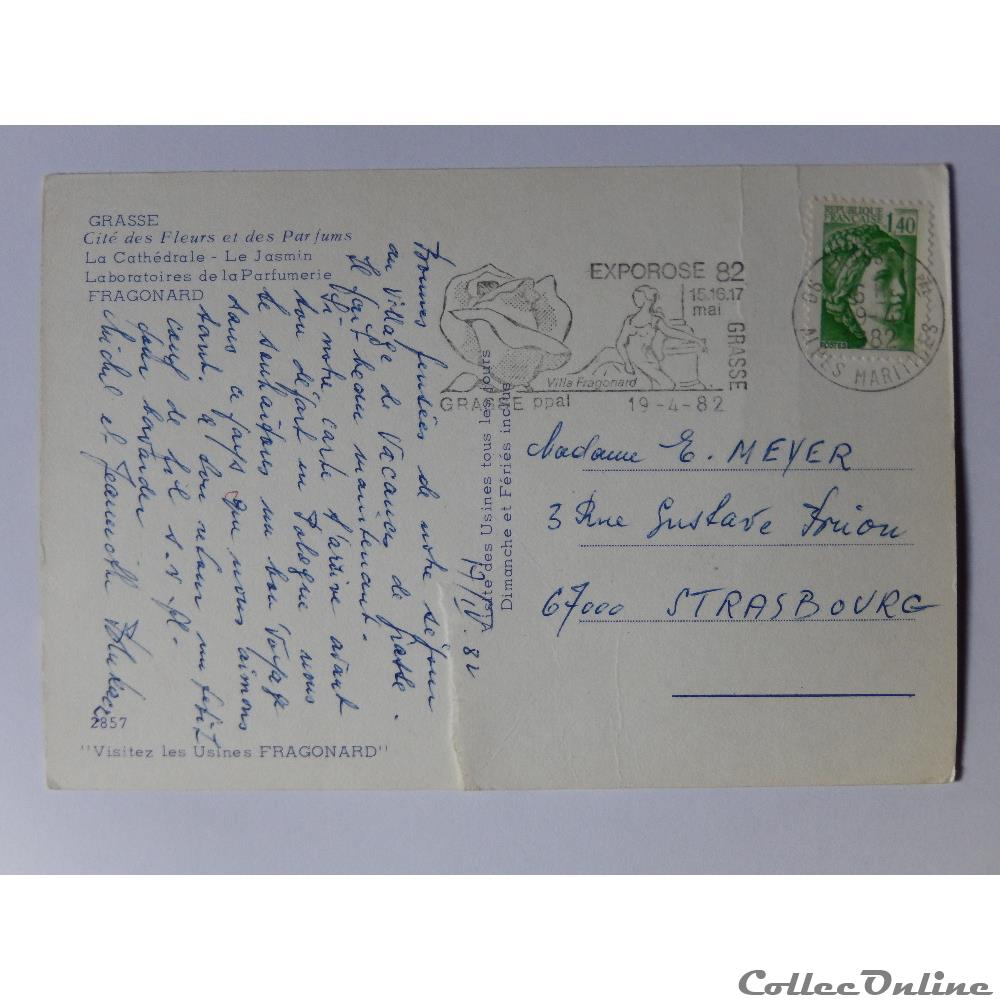 GRASSE
Cité des Fleurs et des Parfums
La Cathédrale - Le Jasmin
Laboratoires de la Parfumerie
FRAGONARD
Bonnes pensées de notre séjour
au Village de Vacances de Grasse.
Il fait beau maintenant.
Si notre carte t'arrive avant
ton départ en Pologne nous
te souhaitons un bon voyage
dans ce pays que nous aimons
tant. A ton retour un petit
coup de fil s.v.pl.
pour bavarder
Michel et Jeannette
2857
"Visitez les Usines FRAGONARD"
Visite des Usines tous les jours
Dimanche et Fériés inclus
17/IV. 82
EXPOROSE 82
15.16.17
mai
GRASSE
Villa Fragonard
GRASSE ppal
19-4-82
REPUBLIQUE
FRANÇAISE
1,40
POSTES
82
ALPES MARITIMES
Madame E. MEYER
3 Rue Gustave
67000 STRASBOURG
CollecOnline